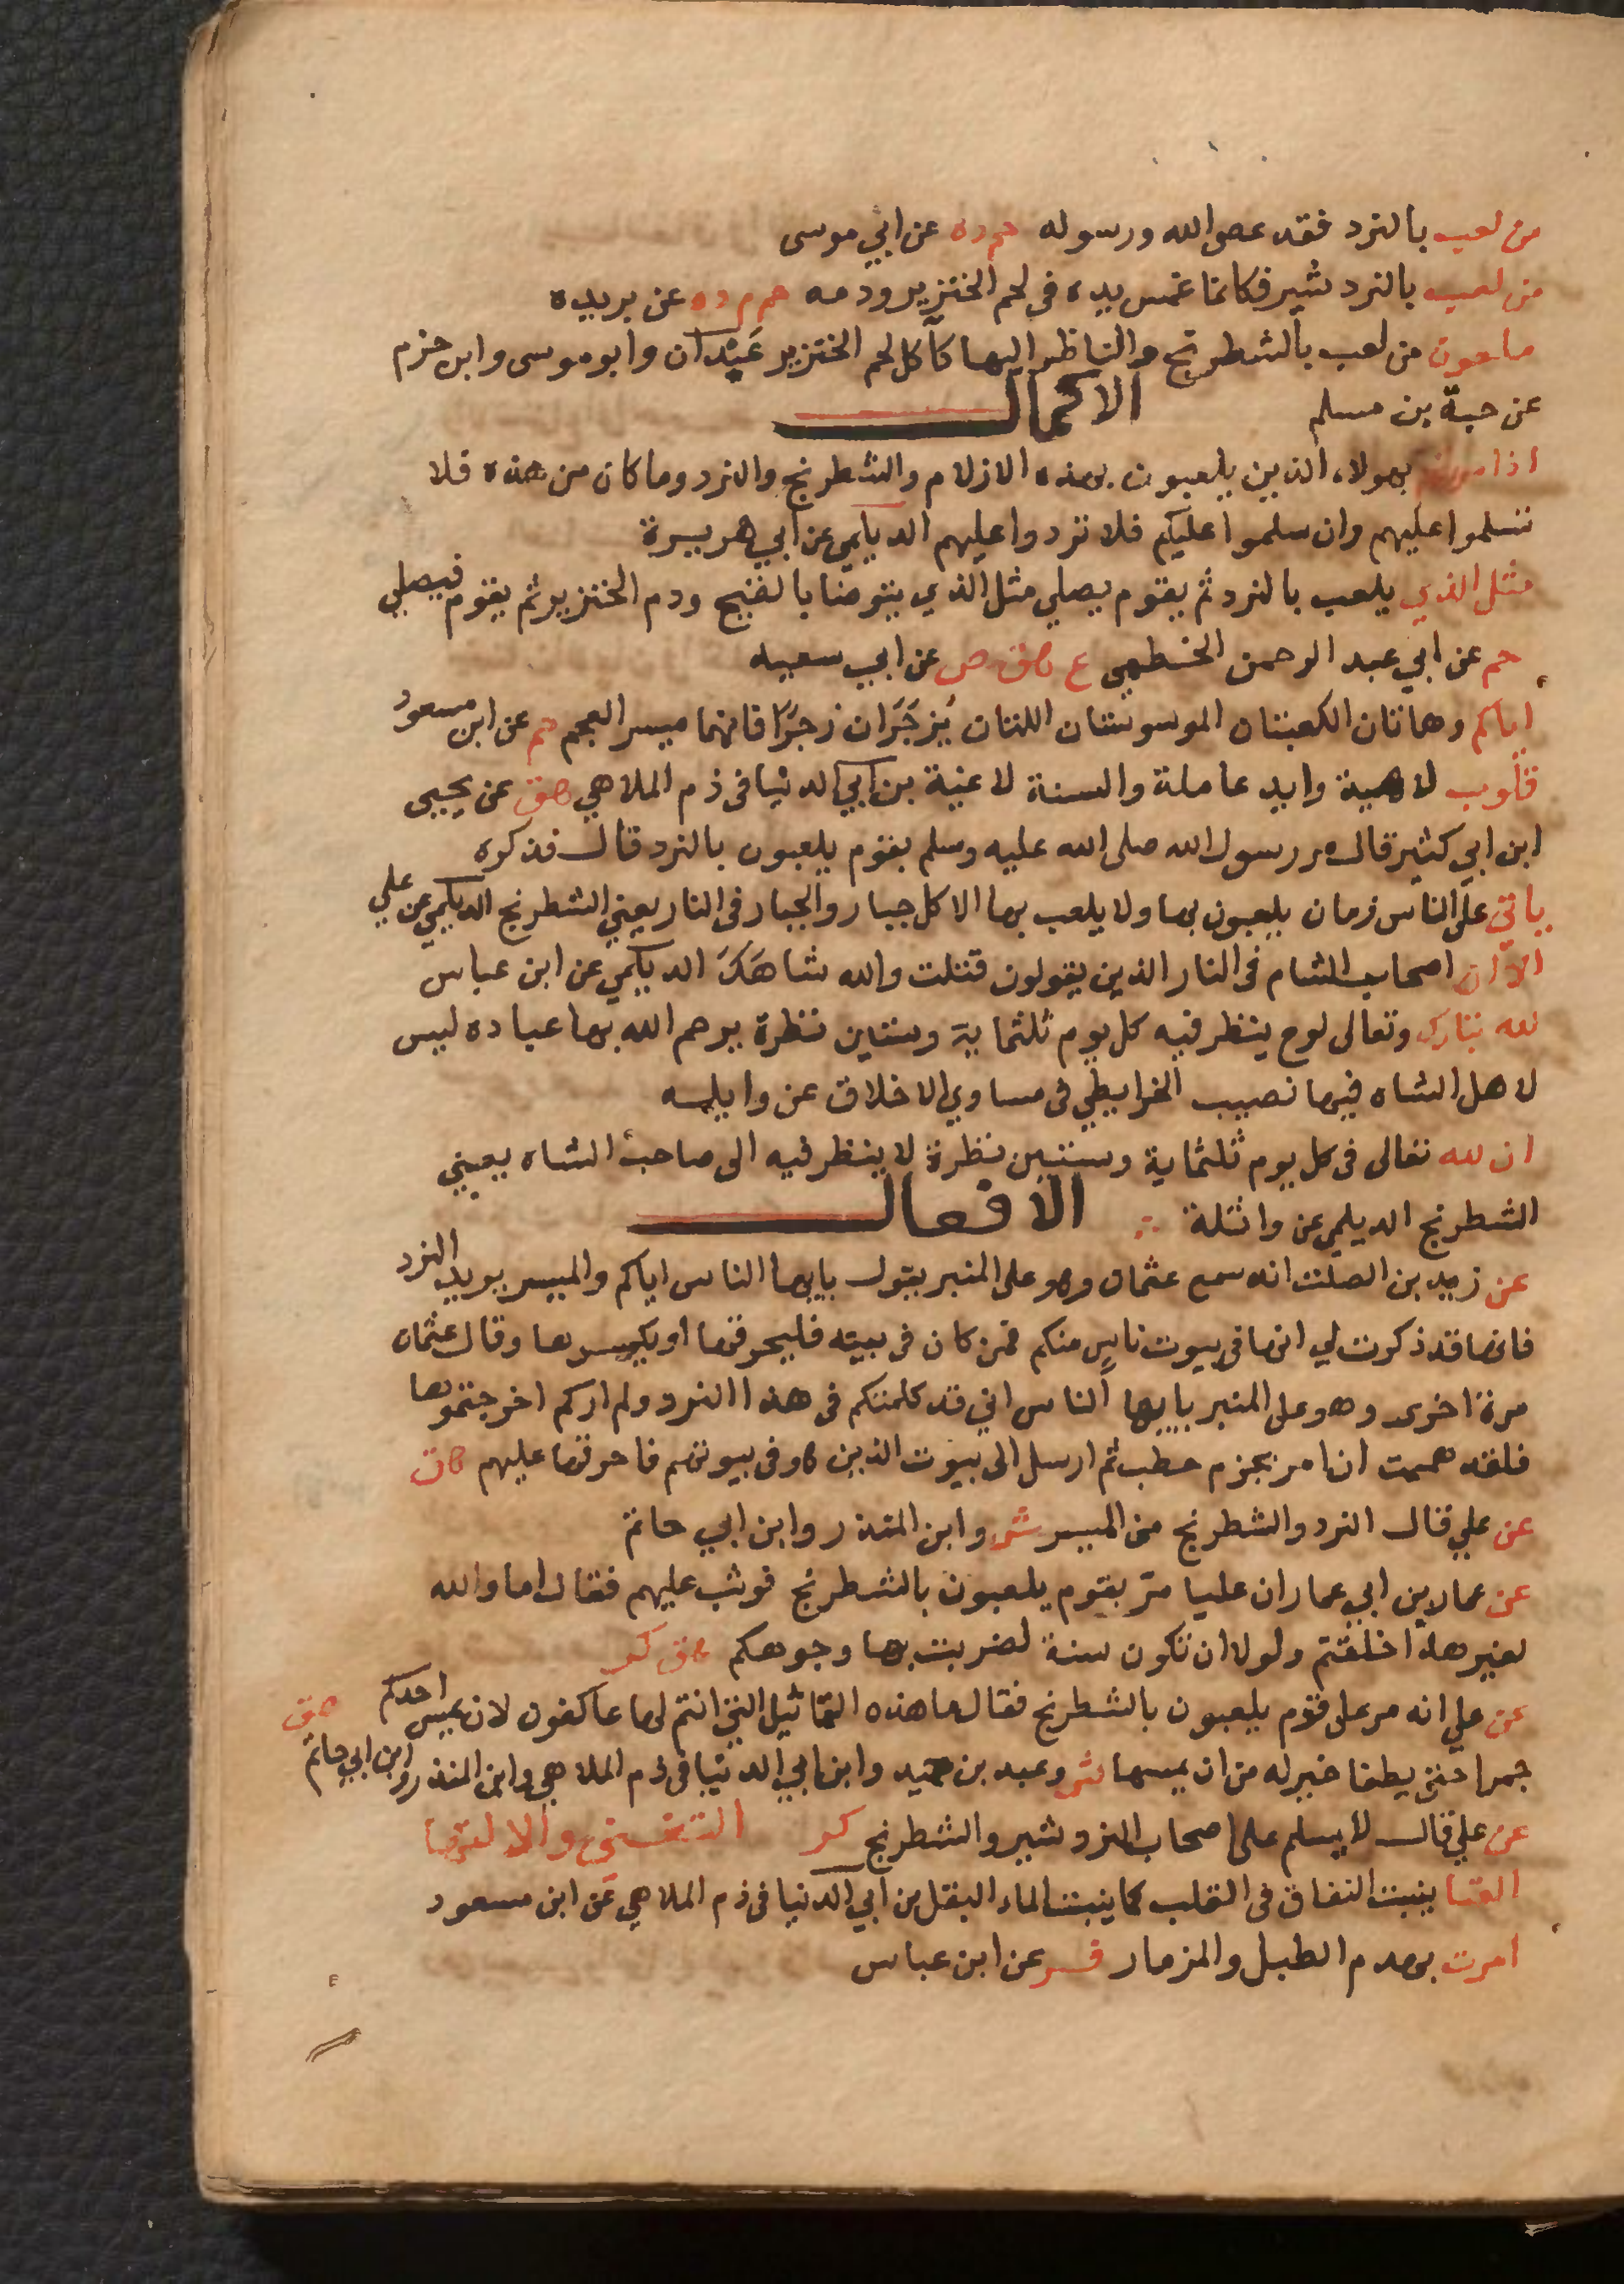 من لعب بالنرد فقد عصى الله ورسوله حم د ه عن ابي موسى
من لعب بالنرد شير فكانما غمس يده فى لحم الخنزير ودمه حم م د ه عن بريده
ملعون من لعب بالشطرنج والناظر اليها كآكل لحم الخنزير عَبْدَان وابو موسى وابن حزم
عن حبة بن مسلم الاكمال
اذا مررتم بهولاء الذين يلعبون بهذه الازلام والشطرنج والنرد وما كان من هذه فلا
تسلموا عليهم وان سلموا عليكم فلا تردوا عليهم الديلمي عن ابي هريرة
مثل الذي يلعب بالنرد ثم يقوم يصلي مثل الذي يتوضا بالقيح ودم الخنزير ثم يقوم فيصلي
حم عن ابي عبد الرحمن الخطمي ع هق ص عن ابي سعيد
اياكم وهاتان الكعبتان الموسومتان اللتان يُزجَرَان زجرًا فانهما ميسر العجم حم عن ابن مسعود
قلوب لاهية وايد عاملة والسنة لاغية بن ابي الدنيا فى ذم الملاهي هق عن يحيى
ابن ابي كثير قال مر رسول الله صلى الله عليه وسلم بقوم يلعبون بالنرد قال فذكره
ياتي على الناس زمان يلعبون بها ولا يلعب بها الا كل جبار والجبار فى النار يعني الشطرنج الديلمي عن علي
الا ان اصحاب الشام فى النار الذين يقولون قتلت والله شاهَكَ الديلمي عن ابن عباس
لله تبارك وتعالى لوح ينظر فيه كل يوم ثلثماية وستين نظرة يرحم الله بها عباده ليس
لاهل الشاه فيها نصيب الخرايطي فى مساوي الاخلاق عن واثله
ان لله تعالى فى كل يوم ثلثماية وستين نظرة لا ينظر فيه الى صاحب الشاه يعني
الشطرنج الديلمي عن واثلة الافعال
عن زبيد بن الصلت انه سمع عثمان وهو على المنبر يقول يايها الناس اياكم والميسر يريد النرد
فانها قد ذكرت لي انها فى بيوت ناسٍ منكم فمن كان فى بيته فليحرقها او يكسرها وقال عثمان
مرة اخرى وهو على المنبر يايها الناس اني قد كلمتكم فى هذا النرد ولم اركم اخرجتموها
فلقد هممت ان امر بحزم حطب ثم ارسل الى بيوت الذين هو فى بيوتهم فاحرقها عليهم هق
عن علي قال النرد والشطرنج من الميسر ش وابن المنذر وابن ابي حاتم
عن عمار بن ابي عمار ان عليا مرّ بقوم يلعبون بالشطرنج فوثب عليهم فقال اما والله
لغير هذا خلقتم ولولا ان تكون سنة لضربت بها وجوهكم هق كر
عن علي انه مر على قوم يلعبون بالشطرنج فقال ما هذه التماثيل التي انتم لها عاكفون لان يمس احدكم هق
جمرا حتى يطفا خير له من ان يمسها ش وعبد بن حميد وابن ابي الدنيا فى ذم الملاهي وابن المنذر وابن ابي حاتم
عن علي قال لا يسلم على اصحاب النردشير والشطرنج كر
الغنا ينبت النفاق فى القلب كما ينبت الماء البقل بن ابي الدنيا فى ذم الملاهي عن ابن مسعود
امرت بهدم الطبل والمزمار فر عن ابن عباس